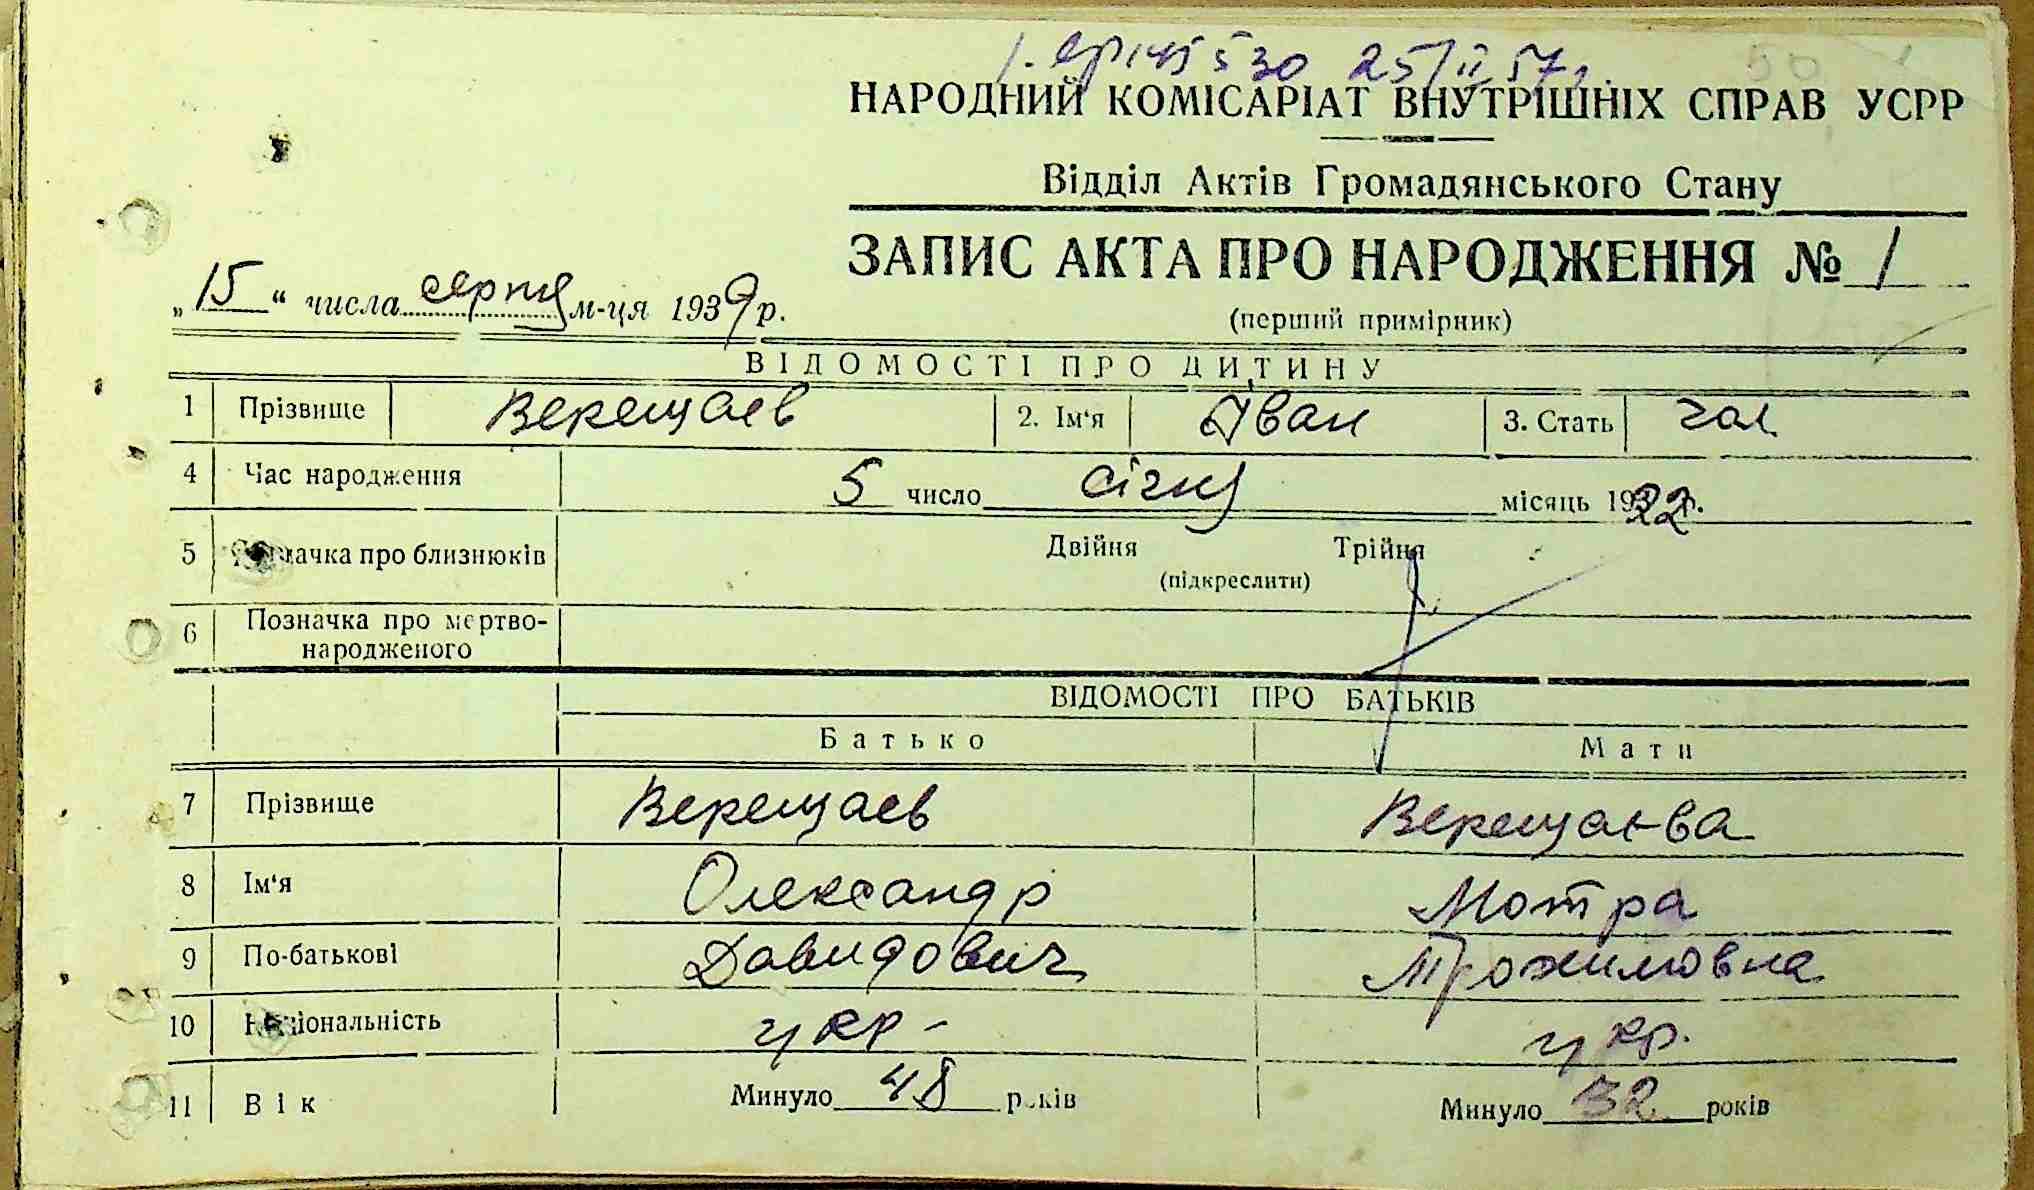 530 25/II 57
НАРОДНИЙ КОМІСАРІАТ ВНУТРІШНІХ СПРАВ УСРР
Відділ Актів Громадянського Стану
ЗАПИС АКТА ПРО НАРОДЖЕННЯ № 1
„15“ числа серпня м-ця 1939 р.
(перший примірник)
ВІДОМОСТІ ПРО ДИТИНУ
1 Прізвище Верещаев 2. Ім‘я Іван 3. Стать чол
4 Час народження 5 число січня місяць 1922 р.
5 Позначка про близнюків Двійня Трійня
(підкреслити)
6 Позначка про мертво-
народженого
ВІДОМОСТІ ПРО БАТЬКІВ
Батько Мати
7 Прізвище Верещаев Верещаева
8 Ім‘я Олександр Мотра
9 По-батькові Давидович Трохимовна
10 Національність укр- укр.
11 Вік Минуло 48 років Минуло 32 років